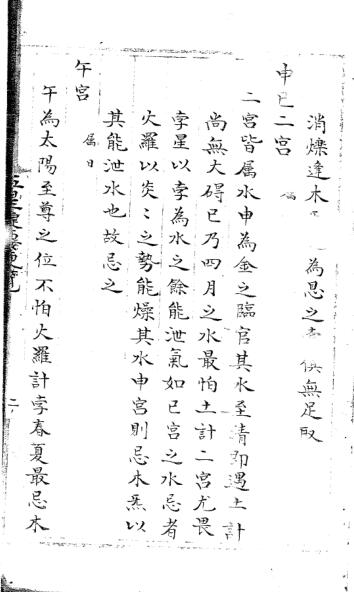 消爍逢木 為恩之 俱無足取
申巳二宮
二宮皆属水申為金之臨官其水至清即遇土計
尚無大碍巳乃四月之水最怕土計二宮尤畏
孛星以孛為水之餘能泄氣如巳宮之水忌者
火羅以炎〻之勢能燥其水申宮則忌木炁以
其能泄水也故忌之
午宮
属日
午為太陽至尊之位不怕火羅計孛春夏最忌木